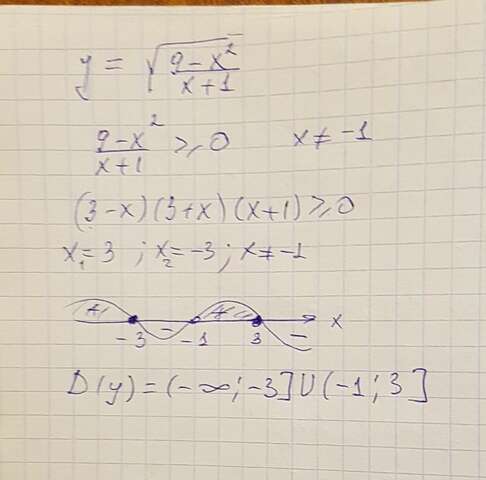 y = √((9-x²)/(x+1))
(9-x²)/(x+1) ≥ 0    x ≠ -1
(3-x)(3+x)(x+1) ≥ 0
x₁ = 3 ; x₂ = -3 ; x ≠ -1
+ - + - x
-3 -1 3
D(y) = (-∞; -3] U (-1; 3]